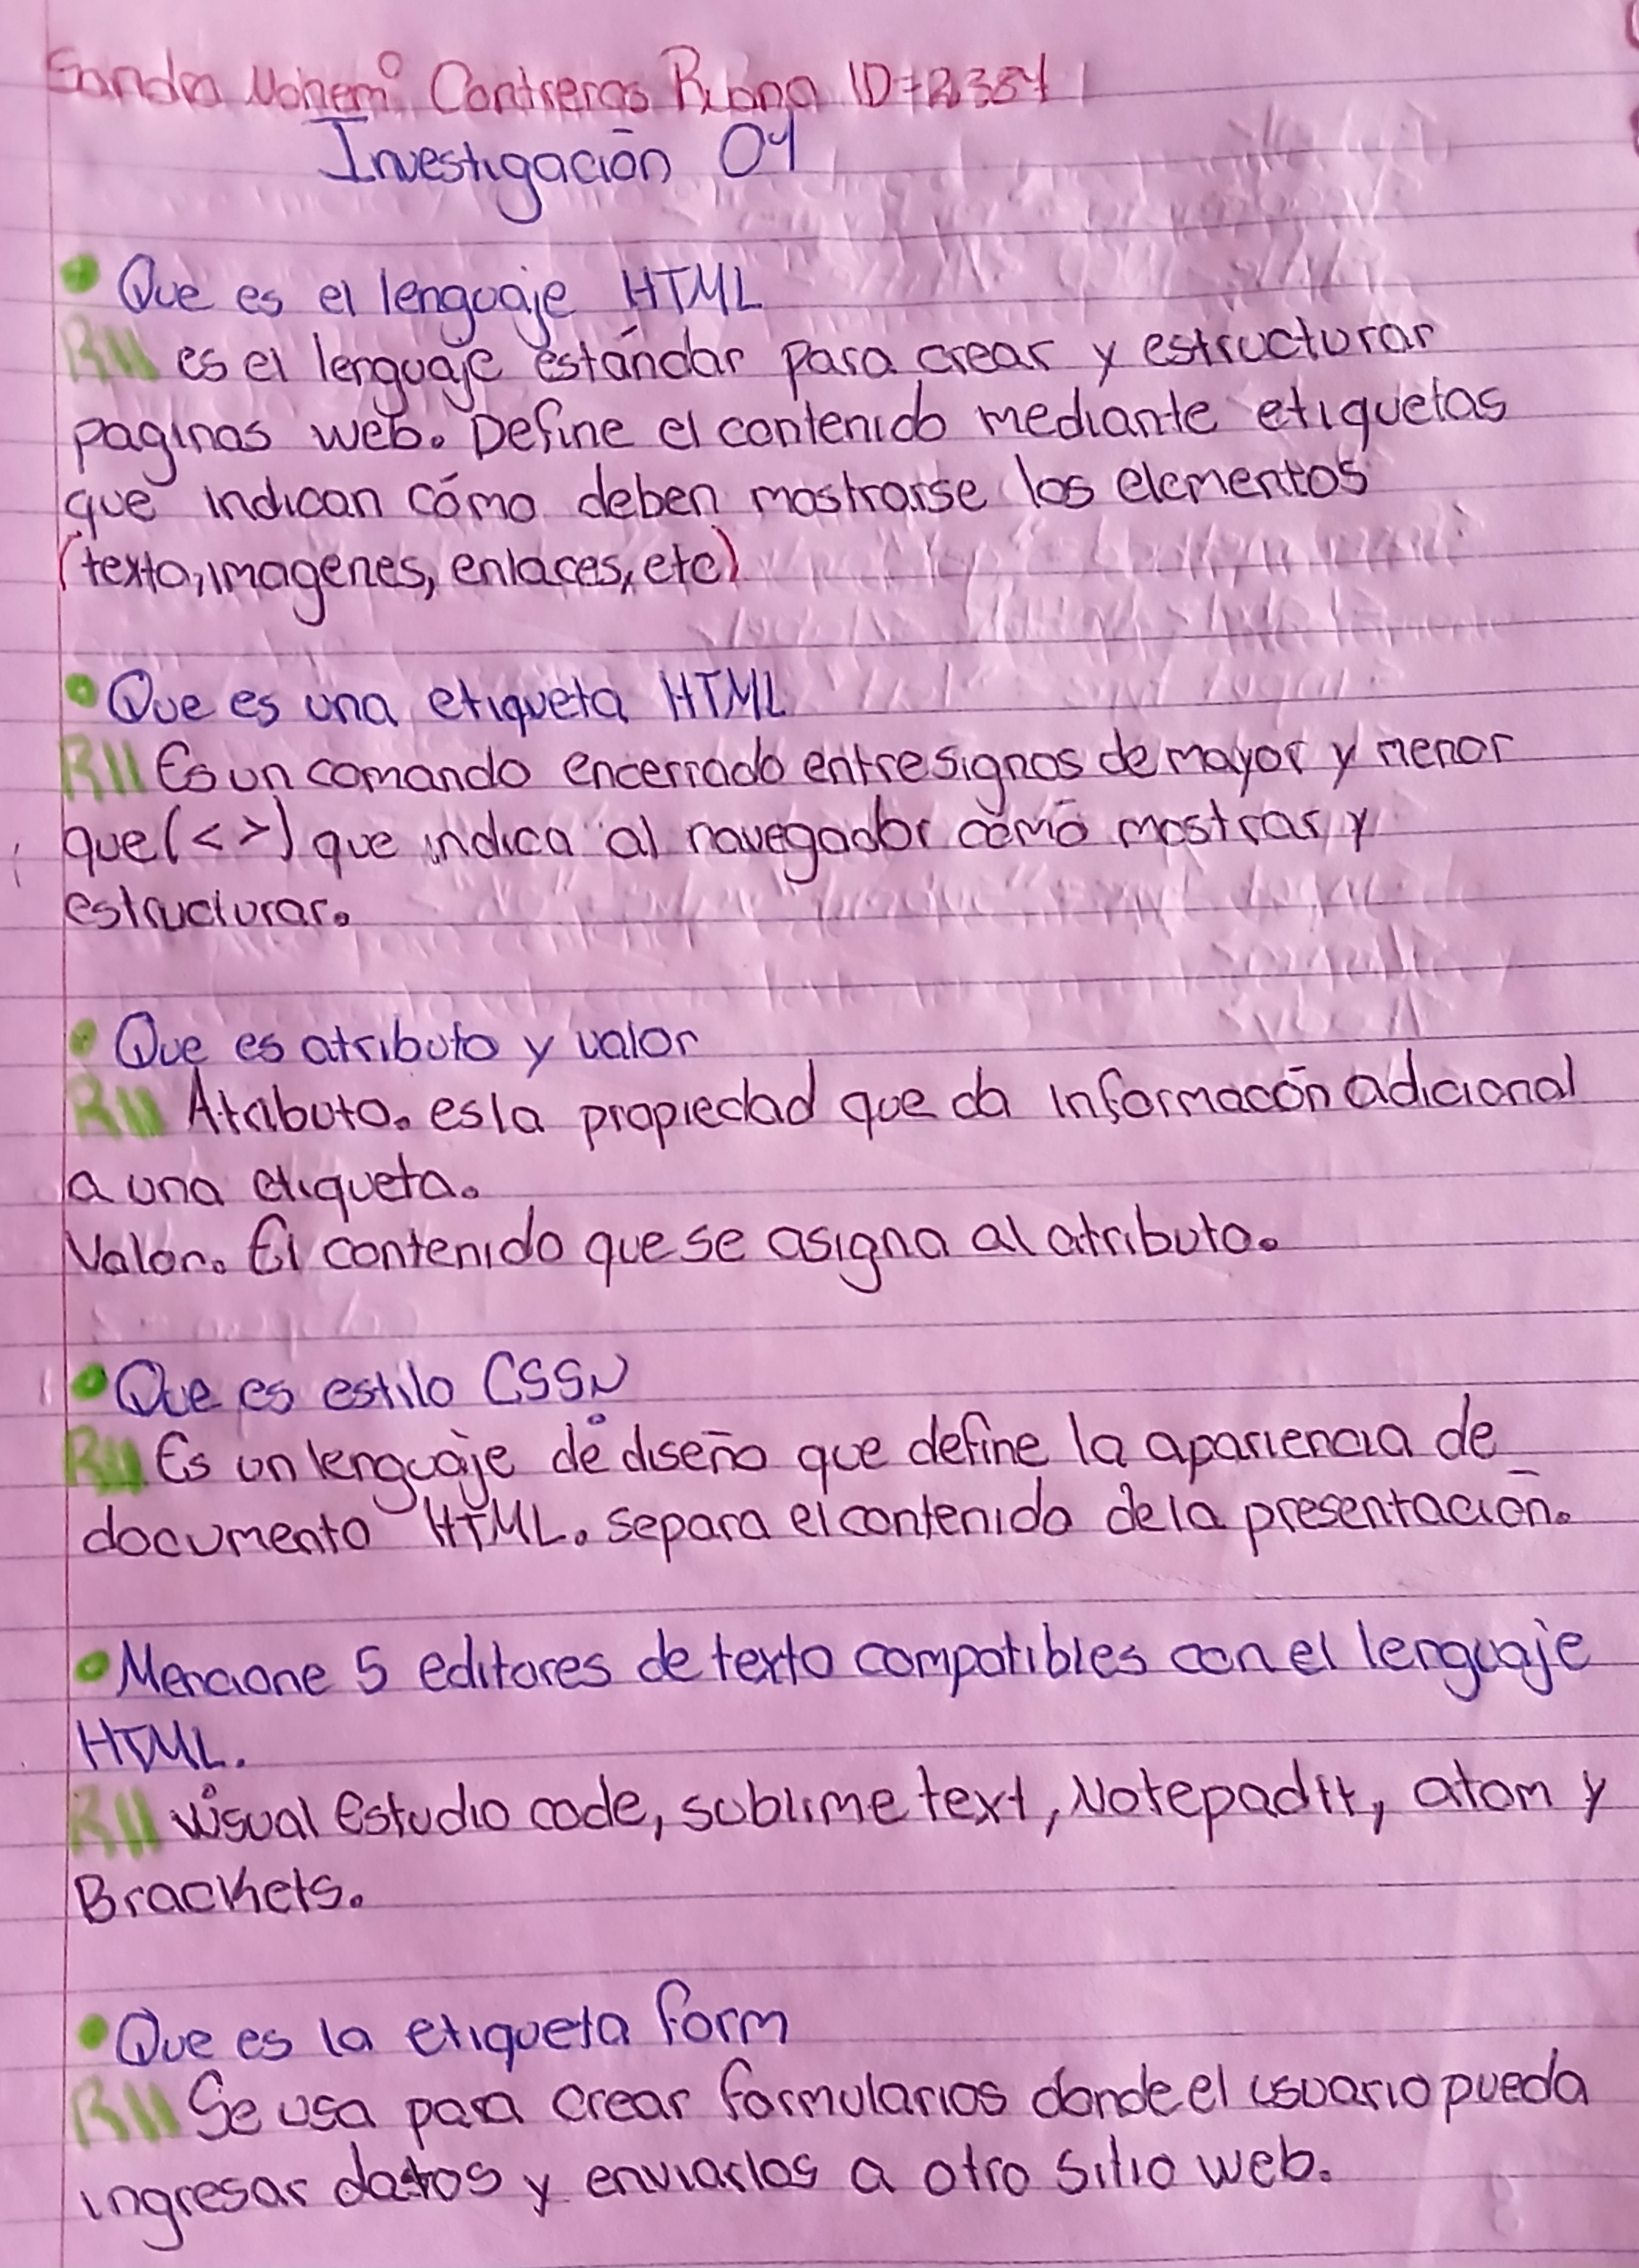 Sandra Nohemí Contreras Rubana ID=2384
Investigación 04
• Que es el lenguaje HTML
R// es el lenguaje estándar para crear y estructurar
paginas web. Define el contenido mediante etiquetas
que indican cómo deben mostrarse los elementos
(texto, imagenes, enlaces, etc)
• Que es una etiqueta HTML
R// Es un comando encerrado entre signos de mayor y menor
que (< >) que indica al navegador cómo mostrar y
estructurar.
• Que es atributo y valor
R// Atributo. es la propiedad que da informacón adicional
a una etiqueta.
Valor. El contenido que se asigna al atributo.
• Que es estilo CSS
R// Es un lenguaje de diseño que define la apariencia de
documento HTML. separa el contenido de la presentación.
• Mencione 5 editores de texto compatibles con el lenguaje
HTML.
R// visual estudio code, sublime text, Notepad++, atom y
Brackets.
• Que es la etiqueta form
R// Se usa para crear formularios donde el usuario pueda
ingresar datos y enviarlos a otro sitio web.